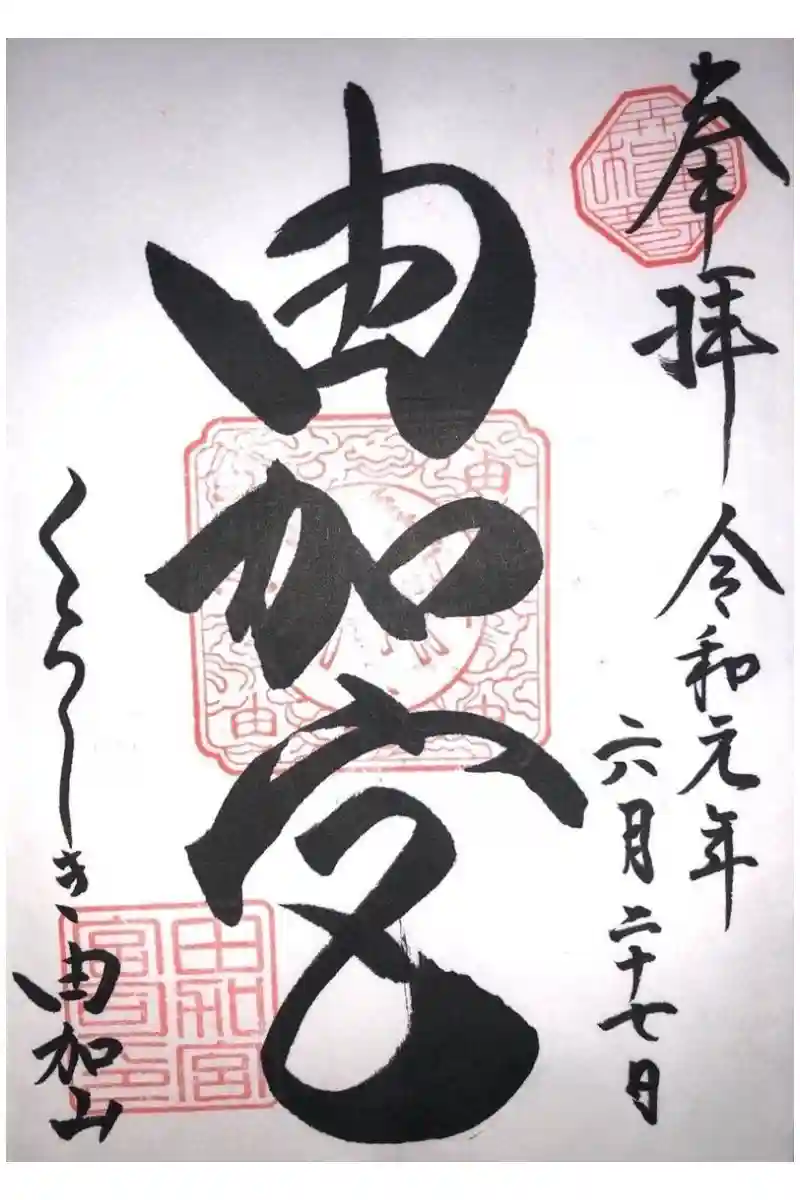 奉拝
令和元年
六月二十七日
由加宮
くらしき
由加山
由
由
由
由加宮
宮司之印